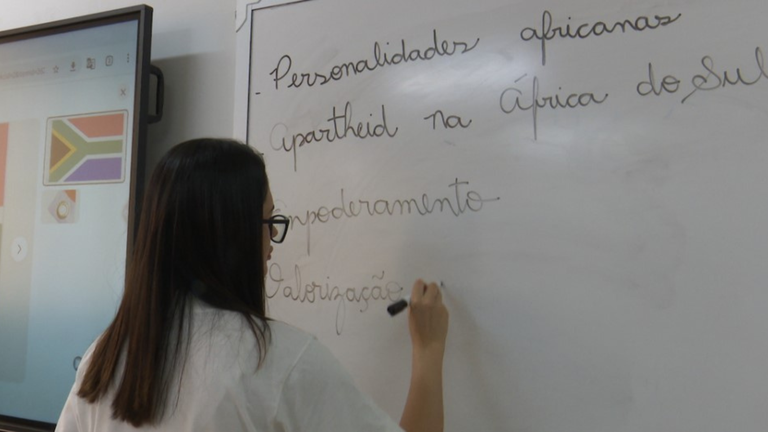 - Personalidades africanas
- Apartheid na África do Sul
Empoderamento
Valorização